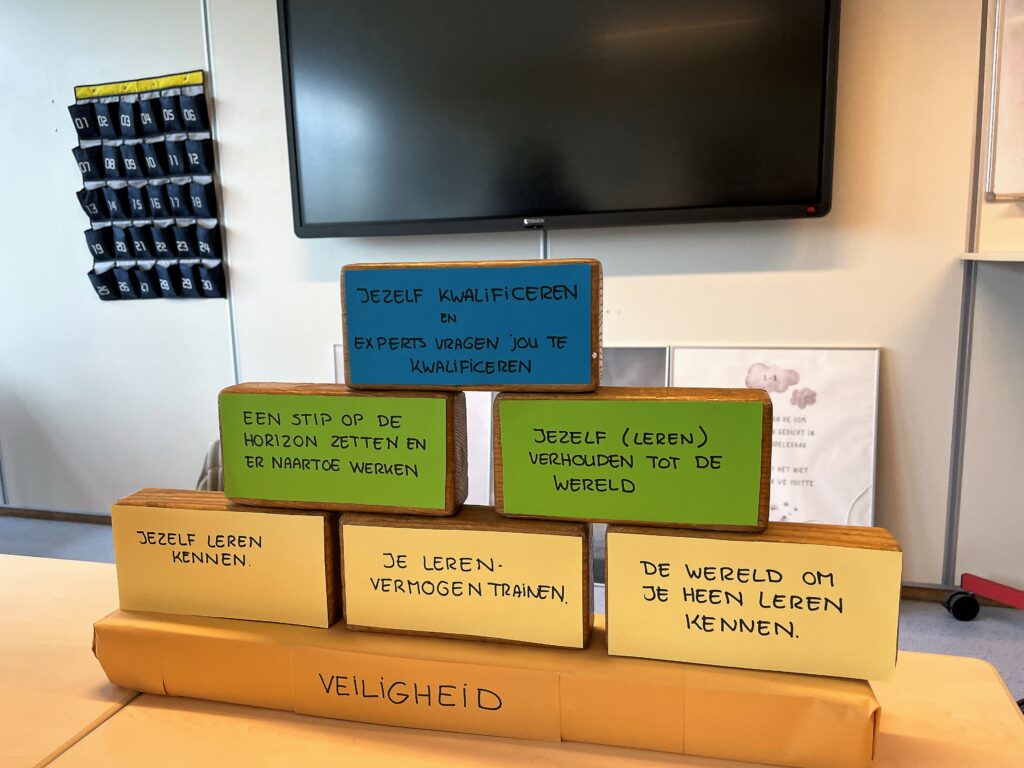 01 02 03 04 05 06
07 08 09 10 11 12
13 14 15 16 17 18
19 20 21 22 23 24
25 26 27 28 29 30
JEZELF KWALIFICEREN
EN
EXPERTS VRAGEN JOU TE
KWALIFICEREN
EEN STIP OP DE
HORIZON ZETTEN EN
ER NAARTOE WERKEN
JEZELF (LEREN)
VERHOUDEN TOT DE
WERELD
JEZELF LEREN
KENNEN.
JE LEREN-
VERMOGEN TRAINEN.
DE WERELD OM
JE HEEN LEREN
KENNEN.
VEILIGHEID
DE SOM
GEDICHT IN
HET NIET
WE